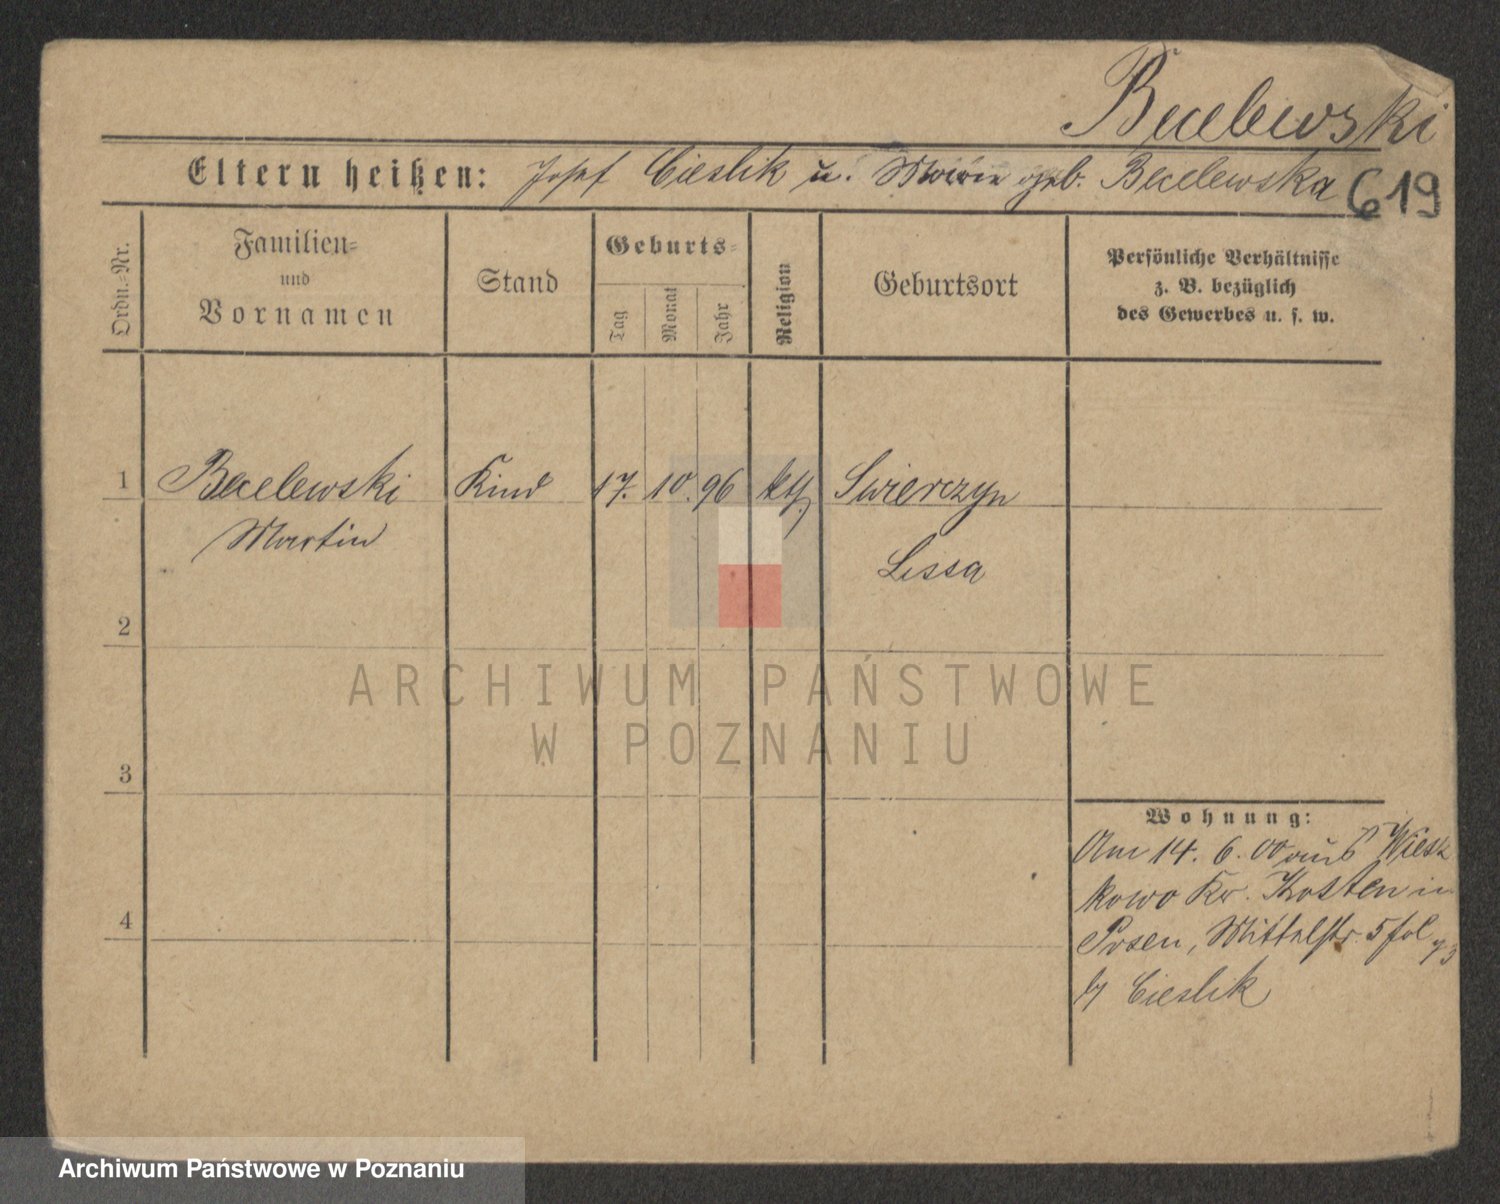 Becelewski
Eltern heißen: Josef Cieslik u. Marie geb. Becelewska 619
Ordn.-Nr.
Familien-
und
Vornamen
Stand
Geburts-
Tag
Monat
Jahr
Religion
Geburtsort
Persönliche Verhältnisse
z. B. bezüglich
des Gewerbes u. s. w.
1 Becelewski Kind 17. 10. 96 kth. Swierczyn
Martin
Lissa
2
3
4
ARCHIWUM PAŃSTWOWE
W POZNANIU
Wohnung:
Am 14. 6. 00 aus Wiesz
kowo Kr. Kosten in
Posen, Mittelstr. 5
b/ Cieslik
Archiwum Państwowe w Poznaniu